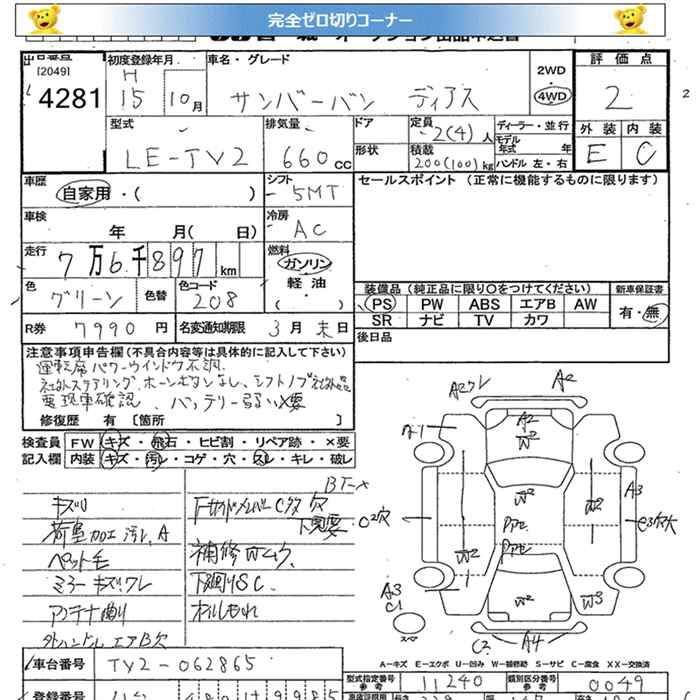 完全ゼロ切りコーナー
[2049]
4281
初度登録年月
H
15 10月
車名・グレード
サンバーバン ディアス
2WD
4WD
評価点
2
外装 内装
E C
型式
LE-TV2
排気量
660cc
ドア
形状
定員
2(4)人
積載
200(100)kg
ディーラー・並行
モデル年式 年
ハンドル 左・右
車歴
自家用・( )
シフト
5MT
セールスポイント (正常に機能するものに限ります)
車検
年 月( 日)
冷房
AC
走行
7万6千897km
燃料
ガソリン
軽油
( )
色
グリーン
色替
色コード
208
装備品(純正品に限り○をつけてください)
PS PW ABS エアB AW
SR ナビ TV カワ
新車保証書
有・無
R券 7990円
名変通知期限 3月末日
後日品
注意事項申告欄(不具合内容等は具体的に記入して下さい)
運転席パワーウインドウ不調
社外ステアリング、ホーンボタンなし、シフトノブ社外品
要現車確認、バッテリー弱い×要
修復歴 有〔箇所 〕
検査員 FW キズ・飛石・ヒビ割・リペア跡・×要
記入欄 内装 キズ・汚レ・コゲ・穴・スレ・キレ・破レ
キズU
荷室加工 汚レ、A
ペット毛
ミラーキズ、ワレ
アンテナ曲り
外ハンドル エアB欠
穴
下見要
補修Wムラ
下廻りSC
オイルもれ
A2
A2
W2
W2
W2
W2
W2
W3
A3
C2穴
A3
C1
スペ
C2
A4
A-キズ E-エクボ U-凹み W-補修跡 S-サビ C-腐食 XX-交換済
車台番号 TV2-062865
型式指定番号
参考
11240
類別区分番号
参考
0049
登録番号